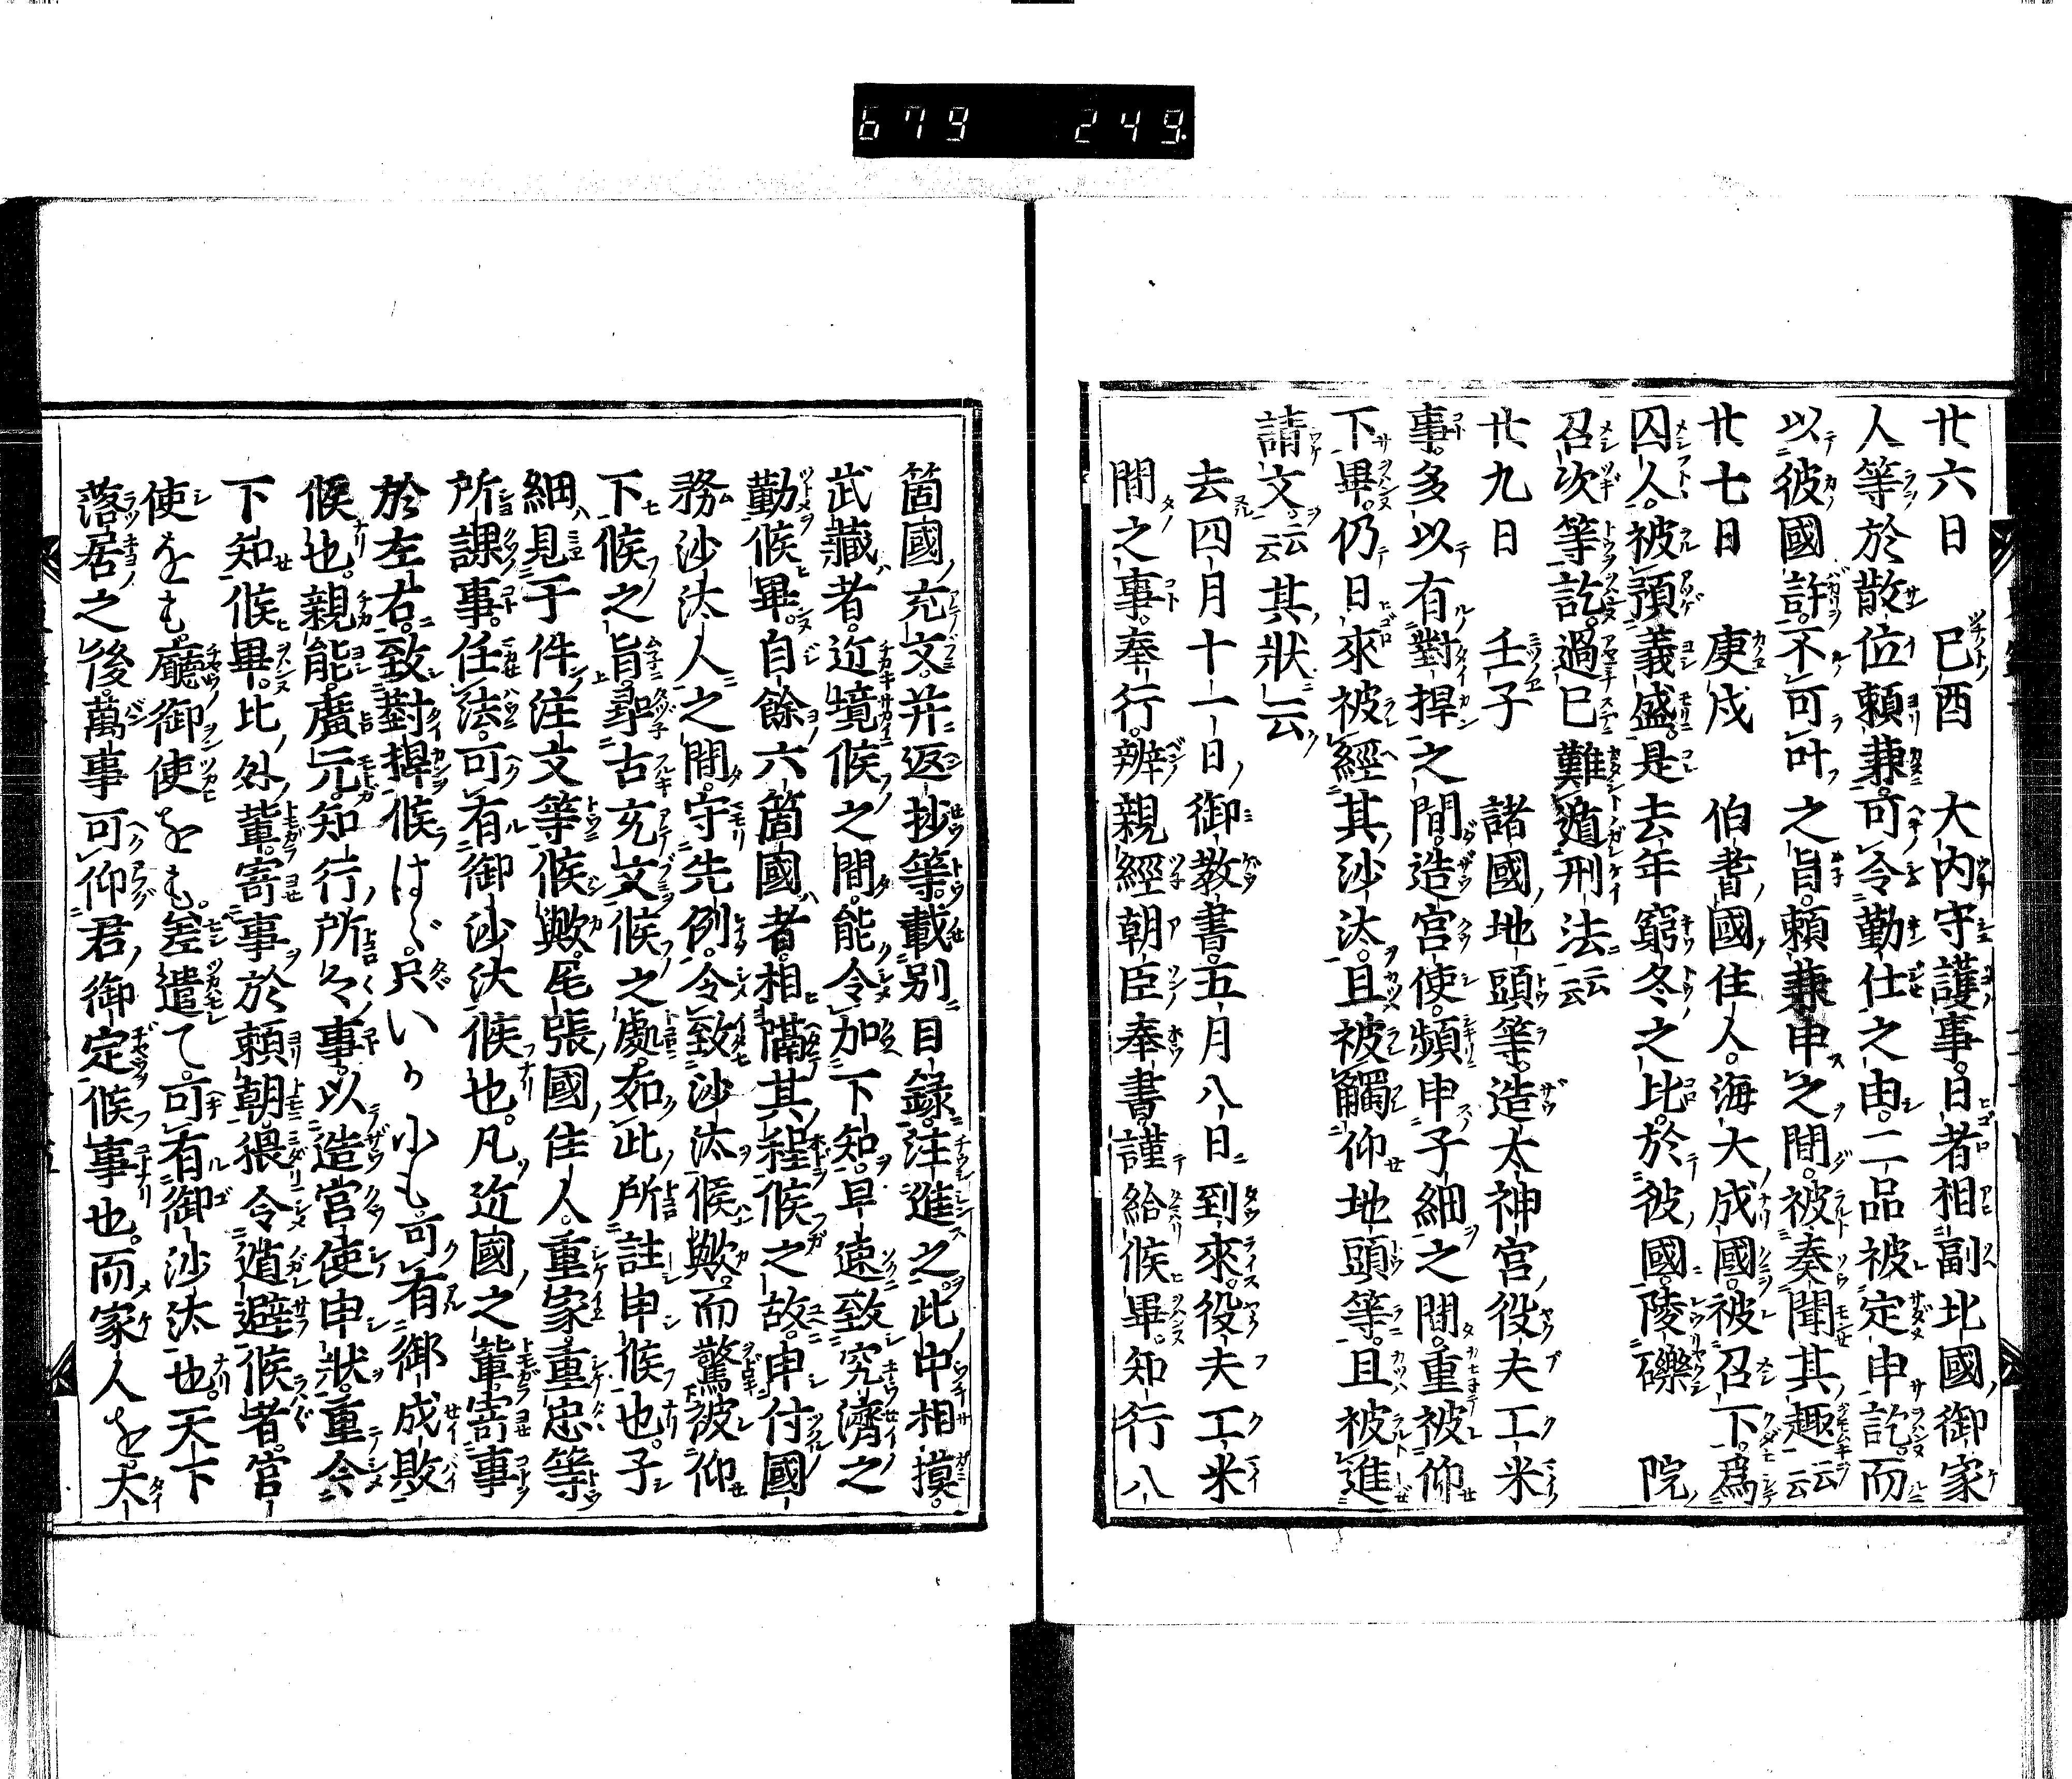 679 249
廿六日 巳酉 大内守護事。日者相副北國御家
人等於散位頼兼。可令勤仕之由。二品被定申訖。而
以彼國許。不可叶之旨。頼兼申之間。被奏聞其趣云云
廿七日 庚戌 伯耆國住人。海大成國。被召下。爲
囚人。被預義盛。是去年窮冬之比。於彼國。陵礫 院
召次等訖。過已難遁刑法云云
廿九日 壬子 諸國地頭等。造太神宮役夫工米
事。多以有對捍之間。造宮使。頻申子細之間。重被仰
下畢。仍日來被經其沙汰。且被觸仰地頭等。且被進
請文云云其狀云
去四月十一日御教書。五月八日到來。役夫工米
間之事。奉行辨親經朝臣奉書謹給候畢。知行八
箇國充文。并返抄等。載別目録。注進之。此中相摸。
武藏者。近境候之間。能令加下知。早速致究濟之
勤候畢。自餘六箇國者。相隔其程候之故。申付國
務沙汰人之間。守先例。令致沙汰候歟。而驚被仰
下候之旨。尋古充文候之處。如此所註申候也。子
細見于件注文等候歟。尾張國住人。重家。重忠等
所課事。任法。可有御沙汰候也。凡近國之輩。寄事
於左右。致對捍候はゞ。只いか小も。可有御成敗
候也。親能。廣元。知行所々事。以造宮使申狀。重令
下知候畢。此外輩。寄事於頼朝。猥令遁避候者。官
使をも。廳御使をも。差遣て。可有御沙汰也。天下
落居之後。萬事可仰君御定候事也。而家人を。大